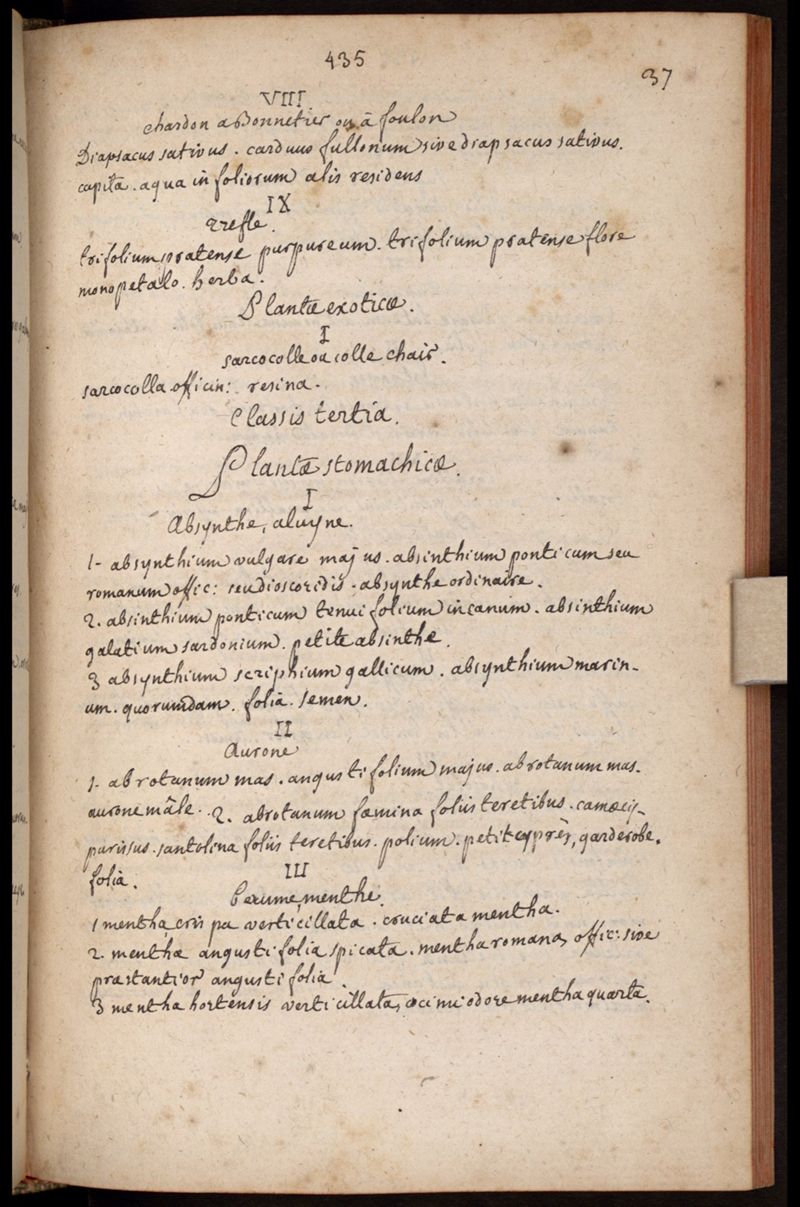 435
37
VIII.
chardon a Bonnetier ou à foulon
Diapsacus sativus. carduus fullonum sive diapsacus sativus.
capita. aqua in foliorum alis residens
IX
trefle.
trifolium pratense purpureum. trifolium pratense flore
monopetalo. herba.
Plantæ exoticæ.
I
sarcocolle ou colle chair.
sarcocolla officin: resina.
Classis tertia.
Plantæ stomachicæ.
I
Absynthe, aluyne.
1- absynthium vulgare majus. absinthium ponticum seu
romanum offic: seu dioscoridis. absynthe ordinaire.
2. absinthium ponticum tenuifolium incanum. absinthium
galatium sardonium. petite absinthe.
3 absynthium seriphium gallicum. absynthium marin-
um. quorumdam. folia. semen.
II
Aurone
1- abrotanum mas. angustifolium majus. abrotanum mas.
aurone mâle. 2. abrotanum fœmina foliis teretibus. camæcy-
parissus. santolina foliis teretibus. polium. petit cyprès, garderobe.
folia.
III
menthe.
1 mentha crispa verticillata. cruciata mentha.
2. mentha angustifolia spicata. mentha romana offic: sive
præstantior angustifolia.
3 mentha hortensis verticillata, ocimi odore mentha quarta.